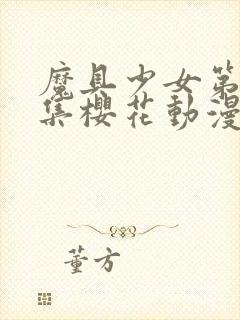 魔具少女第
集櫻花動漫
董方